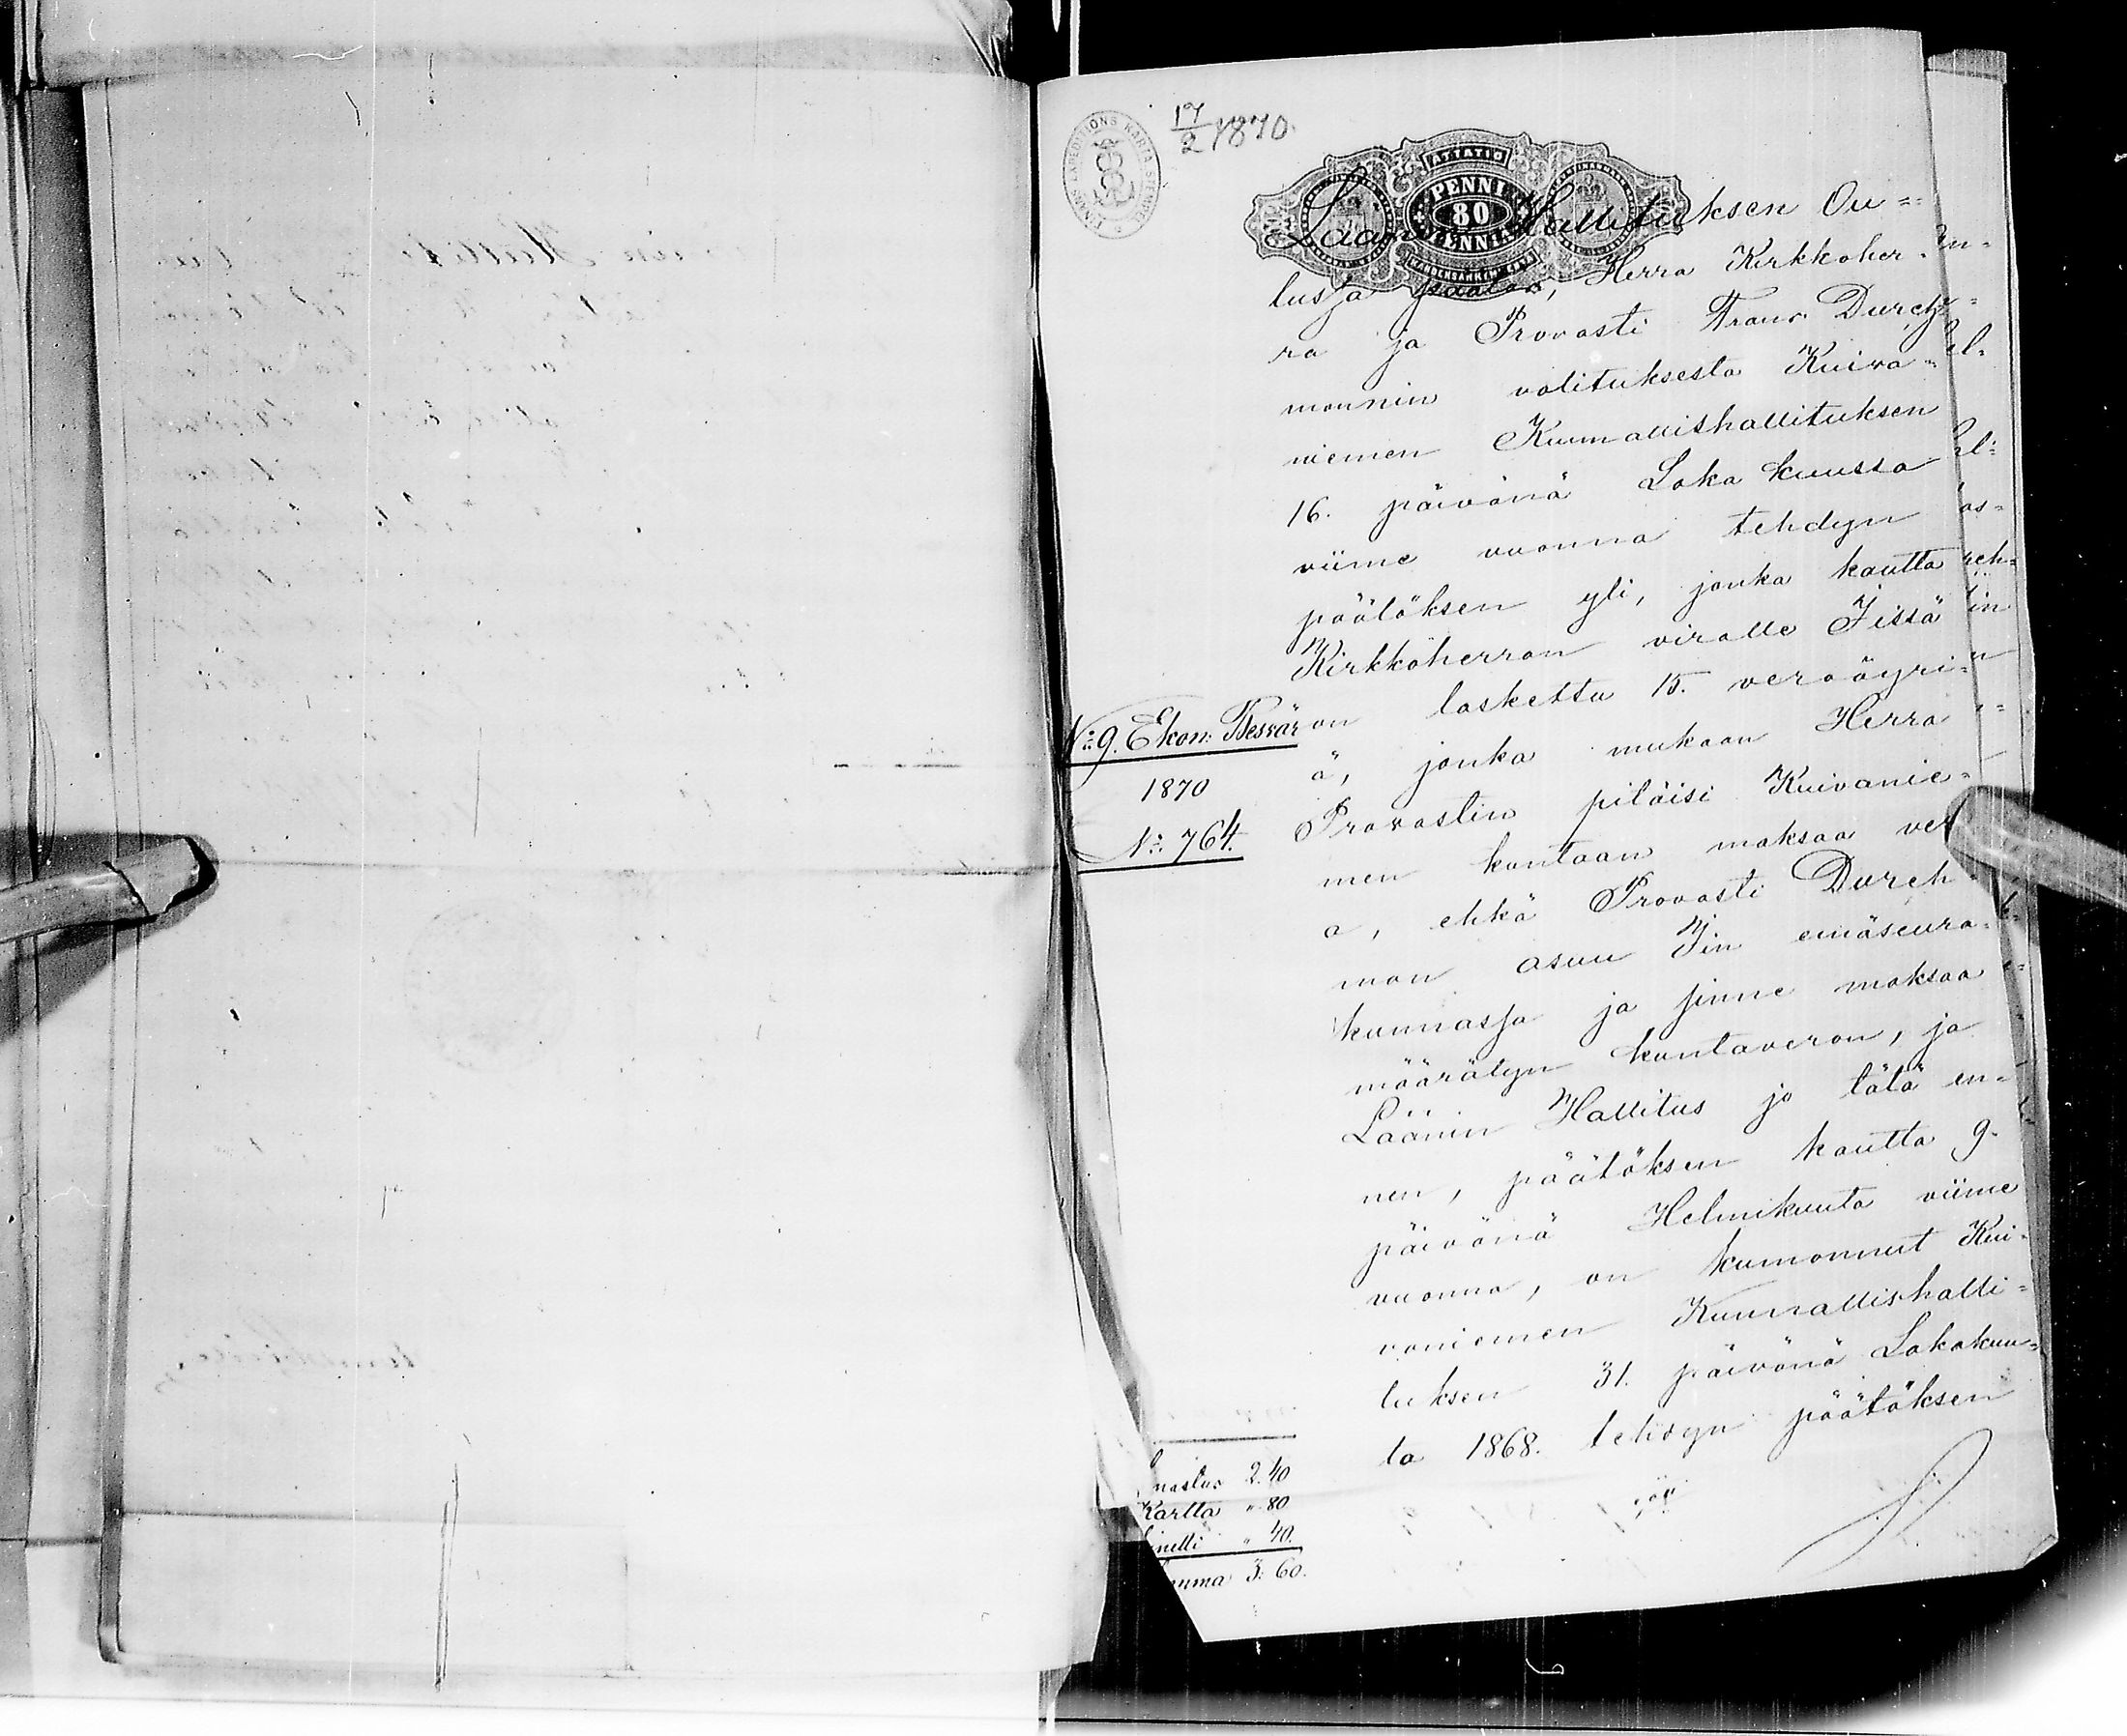 17/2 1870.
ÅTTATIO
PENNI
80
PENNIÄ
Läänin Hallituksen Ou=
lussa päätös, Herra Kirkkoher=
ra ja Provasti Frans Durch=
mannin valituksesta Kuiva=
niemen Kunnallishallituksen
16. päivänä Loka kuussa
viime vuonna tehdyn
päätöksen yli, jonka kautta
Kirkkoherran viralle Jissä
on laskettu 15. veroäyri=
ä, jonka mukaan Herra
Provastin pitäisi Kuivanie=
men kuntaan maksaa vero
a, ehkä Provasti Durch
man asuu Jin emäseura=
kunnassa ja sinne maksaa
määrätyn kuntaveron, ja
Läänin Hallitus jo tätä en=
nen, päätöksen kautta 9.
päivänä Helmikuuta viime
vuonna, on kumonnut Kui=
vaniemen Kunnallishalli=
tuksen 31. päivänä Lokakuu=
ta 1868. tehdyn päätöksen
No 9. Ekon: Besvär
1870
No 764.
Lunastus 2.40
Kartta " 80
" 40.
Summa 3: 60.